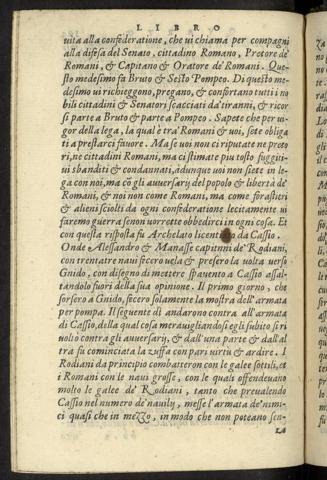 LIBRO
vita alla confederatione, che vi chiama per compagni
alla difesa del Senato, cittadino Romano, Pretore de'
Romani, & Capitano & Oratore de' Romani. Que-
sto medesimo fa Bruto & Sesto Pompeo. Di questo me-
desimo vi richieggono, pregano, & confortano tutti i no
bili cittadini & Senatori scacciati da' tiranni, & ricor
si parte a Bruto & parte a Pompeo. Sapete che per vi-
gor della lega, la qual è tra' Romani & voi, sete obliga
ti a prestarci favore. Ma se voi non ci riputate ne preto
ri, ne cittadini Romani, ma ci stimate piu tosto fuggiti-
vi sbanditi & condannati, adunque voi non siete in le-
ga con noi, ma con gli auversarij del popolo & libertà de'
Romani, & noi non come Romani, ma come forastieri
& alieni sciolti da ogni confederatione lecitamente vi
faremo guerra se non vorrette obbedirci in ogni cosa. Et
con questa risposta fu Archelato licentiato da Cassio.
Onde Alessandro & Manasse capitani de' Rodiani,
con trentatre navi fecero vela & presero la volta verso
Gnido, con disegno di mettere spavento a Cassio assal-
tandolo fuori della sua opinione. Il primo giorno, che
sorsero a Gnido, fecero solamente la mostra dell'armata
per pompa. Il seguente dì andarono contra all'armata
di Cassio, della qual cosa meravigliandosi egli subito si ri
volto contra gli auversarij, & dall'una parte & dall'al
tra fu cominciata la zuffa con pari virtù & ardire. I
Rodiani da principio combatteron con le galee sottili, et
i Romani con le navi grosse, con le quali offendevano
molto le galee de' Rodiani, tanto che prevalendo
Cassio nel numero de' navily, messe l'armata de' nimi-
ci quasi che in mezzo, in modo che non poteano sen-
za